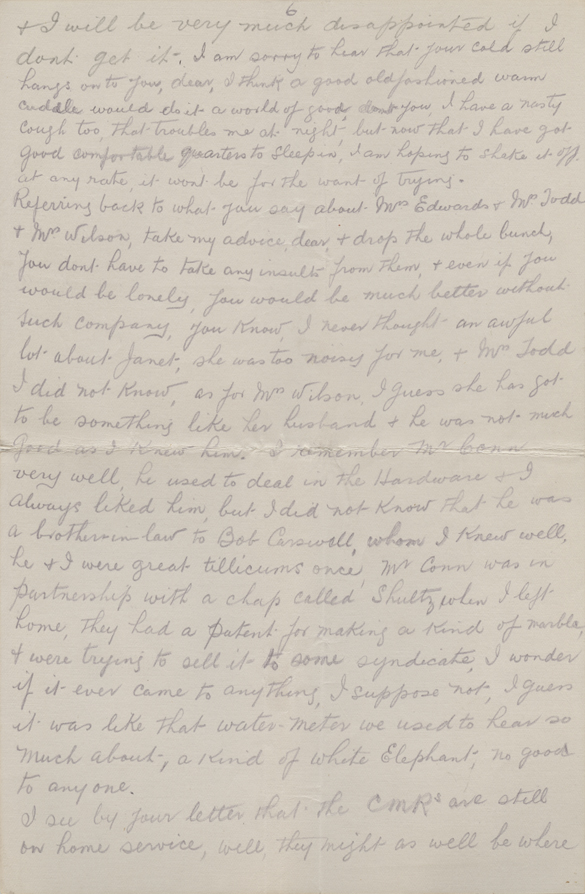 6
& I will be very much disappointed if I
dont get it. I am sorry to hear that your cold still
hangs on to you, dear, I think a good oldfashioned warm
cuddle would do it a world of good, dont you, I have a nasty
cough too, that troubles me at night, but now that I have got
good comfortable quarters to sleep in, I am hoping to shake it off,
at any rate, it wont be for the want of trying.
Referring back to what you say about Mrs Edwards & Mrs Todd
& Mrs Wilson, take my advice, dear, & drop the whole bunch,
you dont have to take any insults from them, & even if you
would be lonely, you would be much better without
such company, you know, I never thought an awful
lot about Janet, she was too noisy for me, & Mrs Todd
I did not know, as for Mrs Wilson, I guess she has got
to be something like her husband & he was not much
good as I knew him. I remember Mr Conn
very well, he used to deal in the Hardware & I
always liked him, but I did not know that he was
a brother-in-law to Bob Carswell, whom I knew well,
he & I were great tillicums once, Mr Conn was in
partnership with a chap called Shultz, when I left
home, they had a patent for making a kind of marble,
& were trying to sell it to some syndicate, I wonder
if it ever came to anything, I suppose not, I guess
it was like that water-meter we used to hear so
much about, a kind of white Elephant, no good
to anyone.
I see by your letter that the CMRs are still
on home service, well, they might as well be where